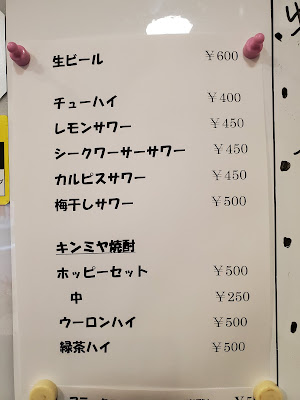 生ビール ￥600
チューハイ ￥400
レモンサワー ￥450
シークワーサーサワー ￥450
カルピスサワー ￥450
梅干しサワー ￥500
キンミヤ焼酎
ホッピーセット ￥500
中 ￥250
ウーロンハイ ￥500
緑茶ハイ ￥500